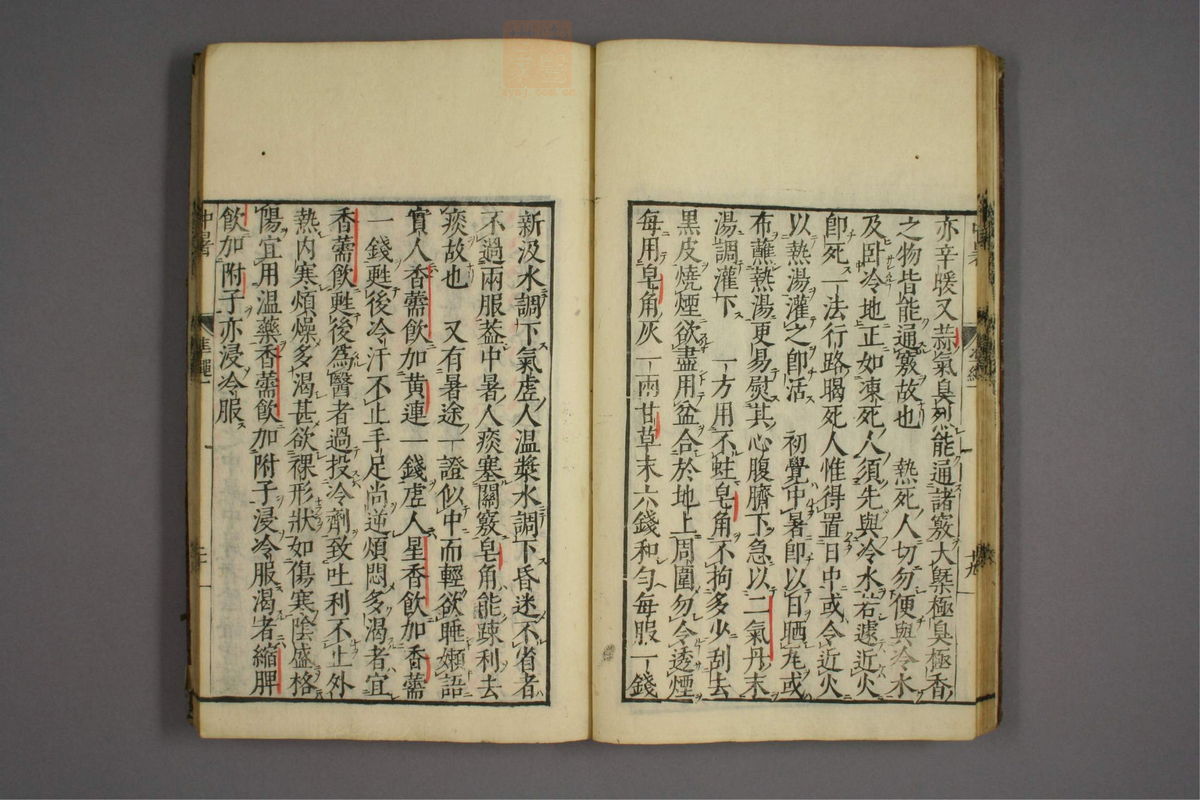 亦辛暖又蒜氣臭烈能通諸竅大槩極臭極香
之物皆能通竅故也　熱死人切勿便與冷水
及卧冷地正如凍死人須先與冷水若遽近火
即死　一法行路暍死人惟得置日中或令近火
以熱湯灌之即活　初覺中暑即以日晒瓦或
布蘸熱湯更易熨其心腹臍下急以二氣丹末
湯調灌下　一方用不蛀皂角不拘多少刮去
黑皮燒煙欲盡用盆合於地上周圍勿令透煙
每用皂角灰一兩甘草末六錢和勻每服一錢
新汲水調下氣虛人温漿水調下昏迷不省者
不過兩服葢中暑人痰塞關竅皂角能疎利去
痰故也　又有暑途一證似中而輕欲睡嬾語
實人香薷飲加黄連一錢虛人星香飲加香薷
一錢甦後冷汗不止手足尚逆煩悶多渴者宜
香薷飲甦後爲醫者過投冷劑致吐利不止外
熱内寒煩燥多渴甚欲裸形狀如傷寒陰盛格
陽宜用温藥香薷飲加附子浸冷服渴者縮脾
飲加附子亦浸冷服
中暑